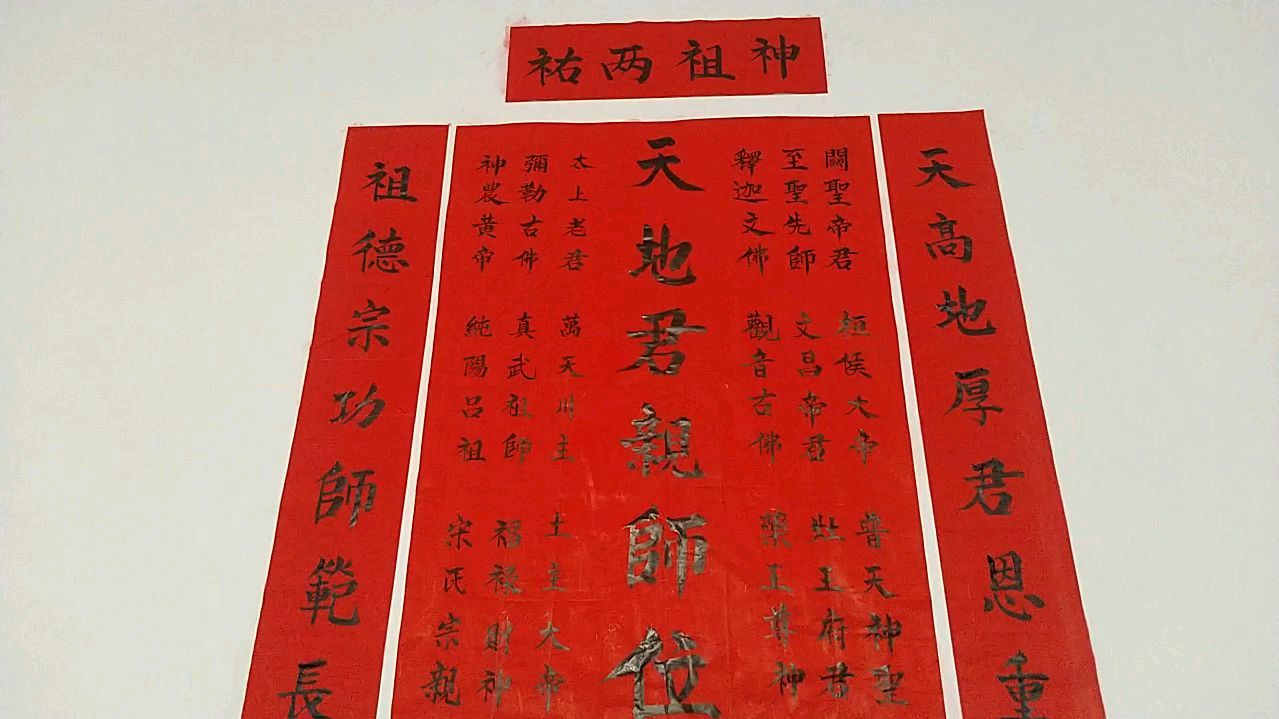 神祖两祐
天高地厚君恩重
關聖帝君 桓侯大帝 普天神聖
至聖先師 文昌帝君 灶王府君
釋迦文佛 觀音古佛 藥王尊神
天地君親師位
太上老君 萬天川主 土主大帝
彌勒古佛 真武祖師 福禄財神
神農黄帝 純陽吕祖 宗氏宗親
祖德宗功師範長